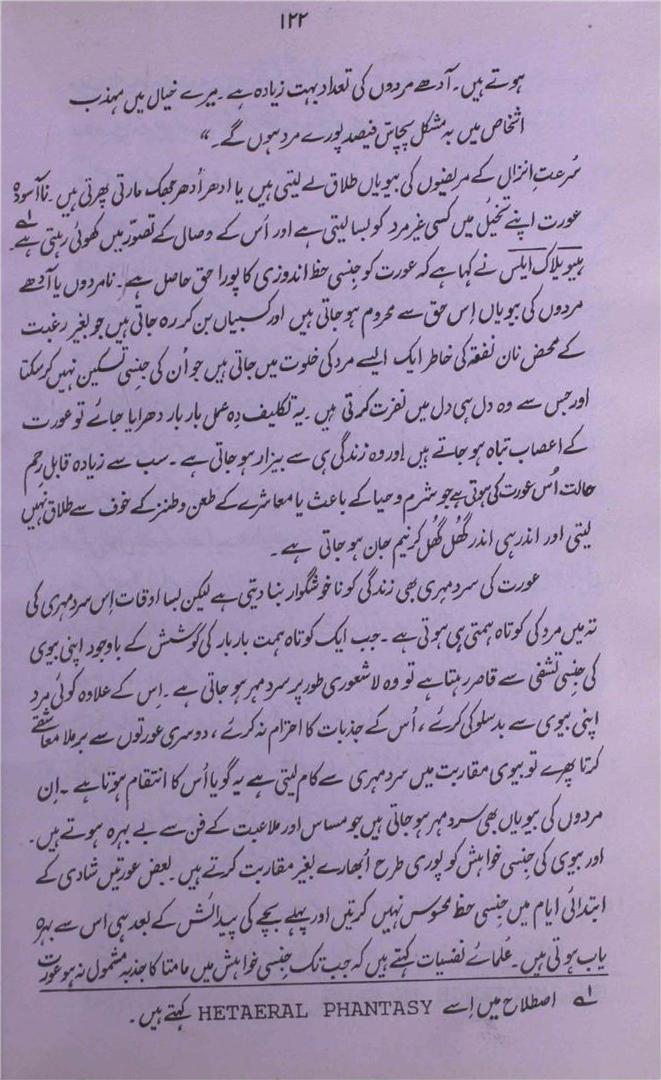 ۱۲۲
ہوتے ہیں۔ آدھے مردوں کی تعداد بہت زیادہ ہے۔ میرے خیال میں مہذب
اشخاص میں بہ مشکل پچاس فیصد پورے مرد ہوں گے۔"
سُرعتِ انزال کے مریضوں کی بیویاں طلاق لے لیتی ہیں یا ادھر اُدھر جھک مارتی پھرتی ہیں۔ ناآسودہ
عورت اپنے تخیّل میں کسی غیر مرد کو بسا لیتی ہے اور اُس کے وصال کے تصوّر میں کھوئی رہتی ہے۔ ۱ے
ہیولاک ایلس نے کہا ہے کہ عورت کو جنسی حظ اندوزی کا پورا حق حاصل ہے۔ نامردوں یا آدھے
مردوں کی بیویاں اِس حق سے محروم ہو جاتی ہیں اور کسبیاں بن کر رہ جاتی ہیں جو بغیر رغبت
کے محض نان نفقہ کی خاطر ایک ایسے مرد کی خلوت میں جاتی ہیں جو اُن کی جنسی تسکین نہیں کر سکتا
اور جس سے وہ دل ہی دل میں نفرت کرتی ہیں۔ یہ تکلیف دِہ عمل بار بار دھرایا جائے تو عورت
کے اعصاب تباہ ہو جاتے ہیں اور وہ زندگی ہی سے بیزار ہو جاتی ہے۔ سب سے زیادہ قابلِ رحم
حالت اُس عورت کی ہوتی ہے جو شرم و حیا کے باعث یا معاشرے کے طعن و طنز کے خوف سے طلاق نہیں
لیتی اور اندر ہی اندر گُھل گُھل کر نیم جان ہو جاتی ہے۔
عورت کی سرد مہری بھی زندگی کو ناخوشگوار بنا دیتی ہے لیکن بسا اوقات اِس سرد مہری کی
تہ میں مرد کی کوتاہ ہمتی ہی ہوتی ہے۔ جب ایک کوتاہ ہمت بار بار کی کوشش کے باوجود اپنی بیوی
کی جنسی تشفی سے قاصر رہتا ہے تو وہ لاشعوری طور پر سرد مہر ہو جاتی ہے۔ اِس کے علاوہ کوئی مرد
اپنی بیوی سے بدسلوکی کرئے، اُس کے جذبات کا احترام نہ کرئے، دوسری عورتوں سے برملا معاشقے
کرتا پھرے تو بیوی مقاربت میں سرد مہری سے کام لیتی ہے یہ گویا اُس کا انتقام ہوتا ہے۔ اِن
مردوں کی بیویاں بھی سرد مہر ہو جاتی ہیں جو مساس اور ملاعبت کے فن سے بے بہرہ ہوتے ہیں۔
اور بیوی کی جنسی خواہش کو پوری طرح اُبھارے بغیر مقاربت کرتے ہیں۔ بعض عورتیں شادی کے
ابتدائی ایام میں جنسی حظ محسوس نہیں کرتیں اور پہلے بچے کی پیدائش کے بعد ہی اس سے بہرہ
یاب ہوتی ہیں۔ عُلمائے نفسیات کہتے ہیں کہ جب تک جنسی خواہش میں مامتا کا جذبہ مشمول نہ ہو عورت
۱ے اصطلاح میں اِسے HETAERAL PHANTASY کہتے ہیں۔